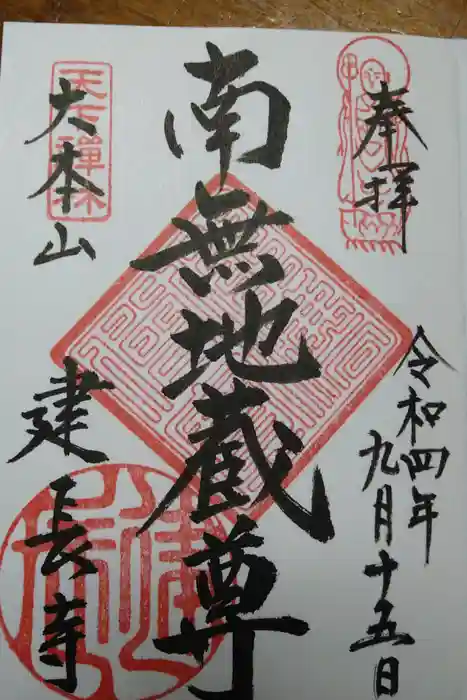 奉拝
令和四年
九月十五日
南無地蔵尊
大本山
建長寺
天下禅林